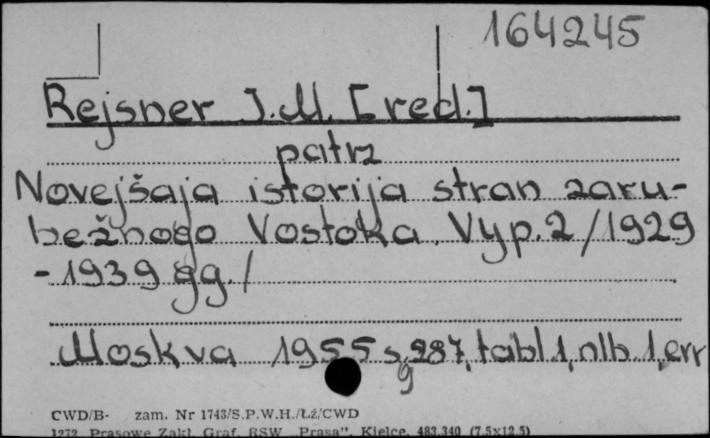 164245
Rejsner J.M. [red.]
patrz
Novejšaja istorija stran zaru-
bežnogo Vostoka. Vyp.2 /1929
-1939 gg./
Moskva 1955 s, 287, tabl 1, nlb 1, err
9
CWD/B- zam. Nr 1743/S.P.W.H./Łź/CWD
1272 Prasowe Zakł. Graf. RSW „Prasa”, Kielce. 483.340 (7,5x12,5)